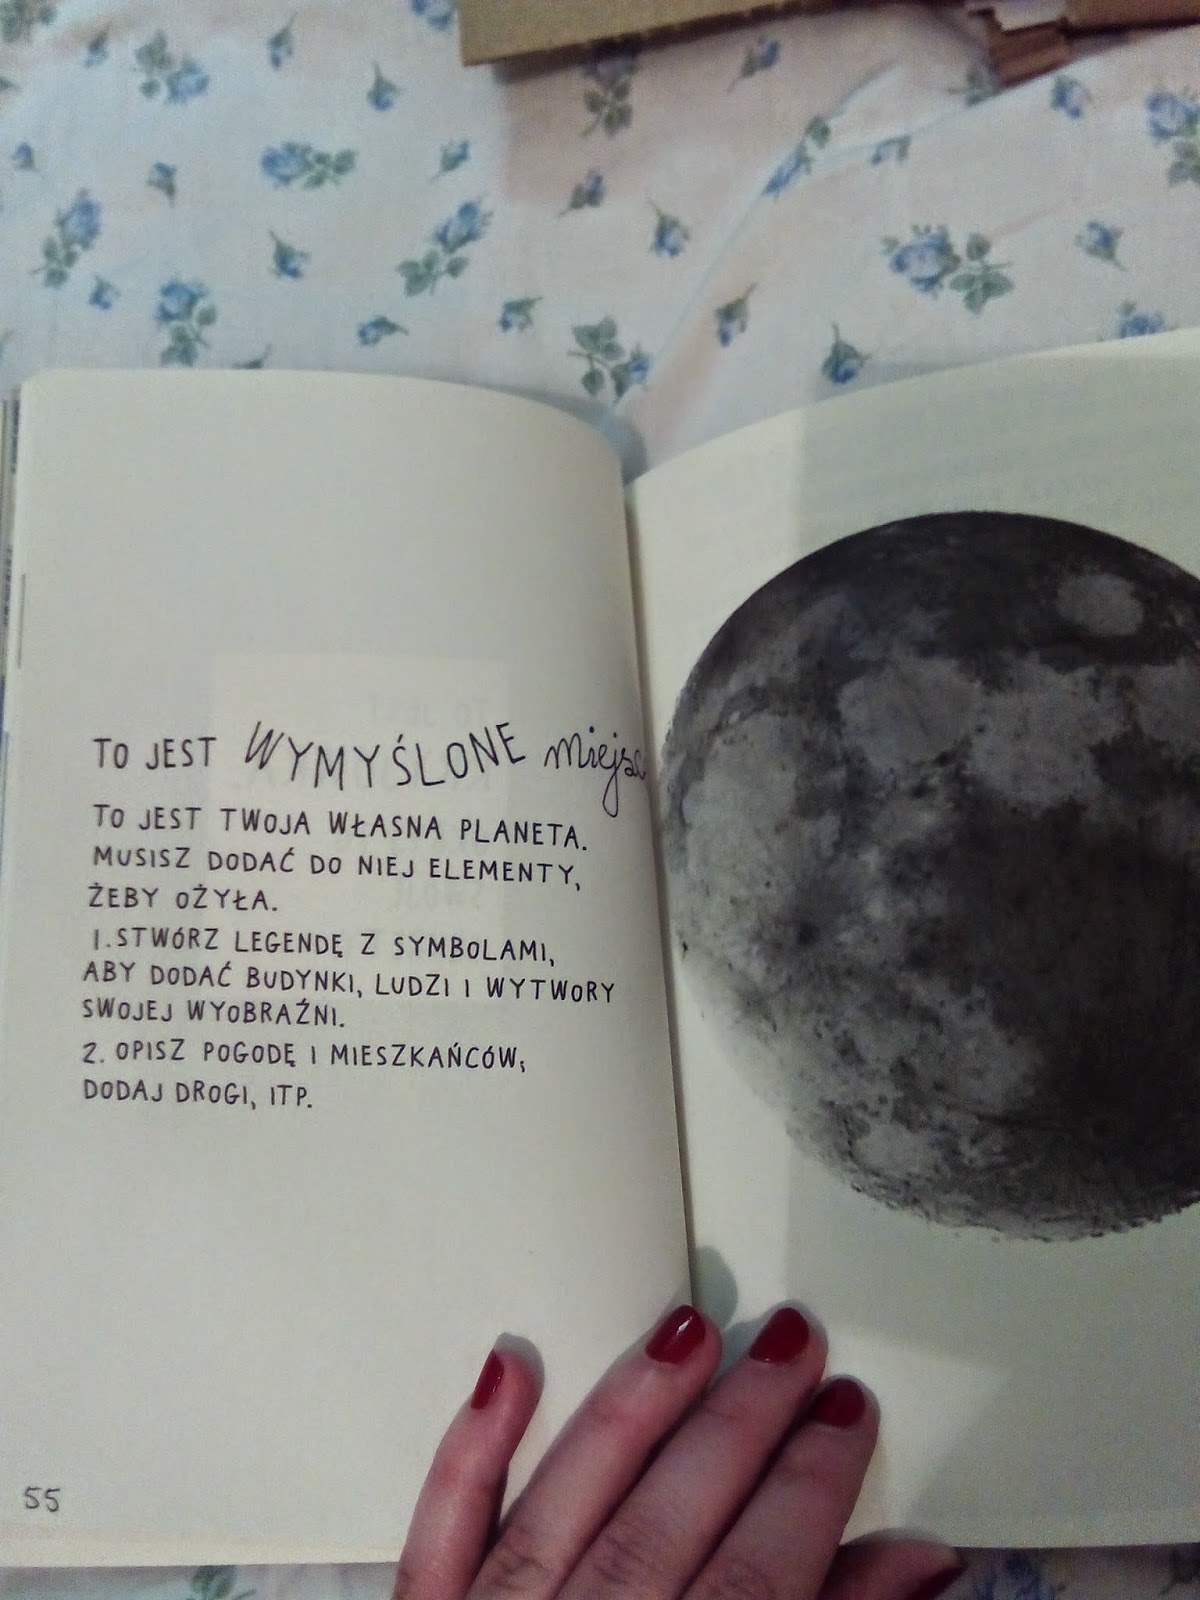 TO JEST WYMYŚLONE
TO JEST TWOJA WŁASNA PLANETA.
MUSISZ DODAĆ DO NIEJ ELEMENTY,
ŻEBY OŻYŁA.
1. STWÓRZ LEGENDĘ Z SYMBOLAMI,
ABY DODAĆ BUDYNKI, LUDZI I WYTWORY
SWOJEJ WYOBRAŹNI.
2. OPISZ POGODĘ I MIESZKAŃCÓW;
DODAJ DROGI, ITP.
55